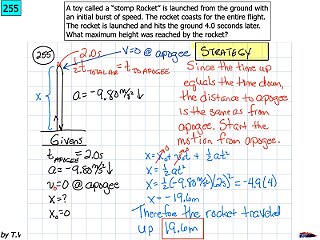 255
A toy called a "stomp Rocket" is launched from the ground with
an initial burst of speed. The rocket coasts for the entire flight.
The rocket is launched and hits the ground 4.0 seconds later.
What maximum height was reached by the rocket?
255
2.0s
v=0 @ apogee
½ t TOTAL AIR = t TO APOGEE
x
a=-9.80 m/s² ↓
STRATEGY
Since the time up
equals the time down,
the distance to apogee
is the same as from
apogee. Start the
motion from apogee.
Givens
t APOGEE = 2.0s
a=-9.80 m/s² ↓
v₀=0 @ apogee
x=?
x₀=0
x=x₀+v₀t+½at²
x=½at²
x=½(-9.80 m/s²)(2s)²=-4.9(4)
x=-19.6m
Therefore the rocket traveled
up 19.6m
by T.W